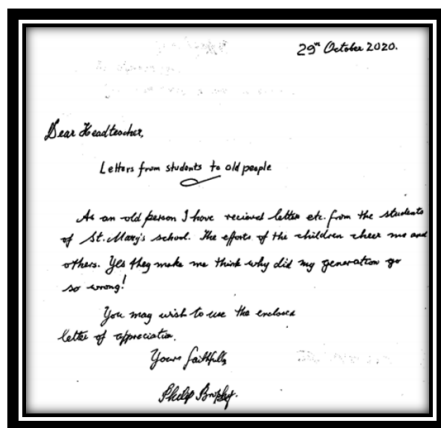 29th October 2020.
Dear Headteacher,
Letters from students to old people
As an old person I have recieved letter etc. from the students
of St. Mary's school. The efforts of the children cheer me and
others. Yes they make me think why did my generation go
so wrong!
You may wish to use the enclosed
letter of appreciation.
Yours faithfully,
Philip